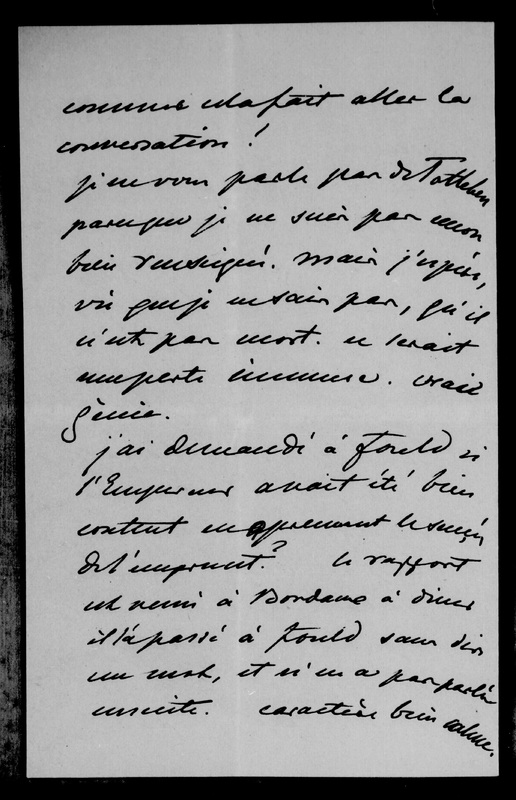 comme cela fait aller la
conversation !
je ne vous parle pas de Totleben
parceque je ne suis pas encore
bien renseigné. mais j'espère,
vu que je ne sais pas, qu'il
n'est pas mort. ce serait
une perte immense. vrai
génie.
j'ai demandé à Fould si
l'Empereur avait été bien
content en apprenant le succès
de l'emprunt ? le rapport
est remis à Bordeaux à diner
il l'a passé à Fould sans dire
un mot, et n'en a pas parlé
ensuite. caractère bien calme.